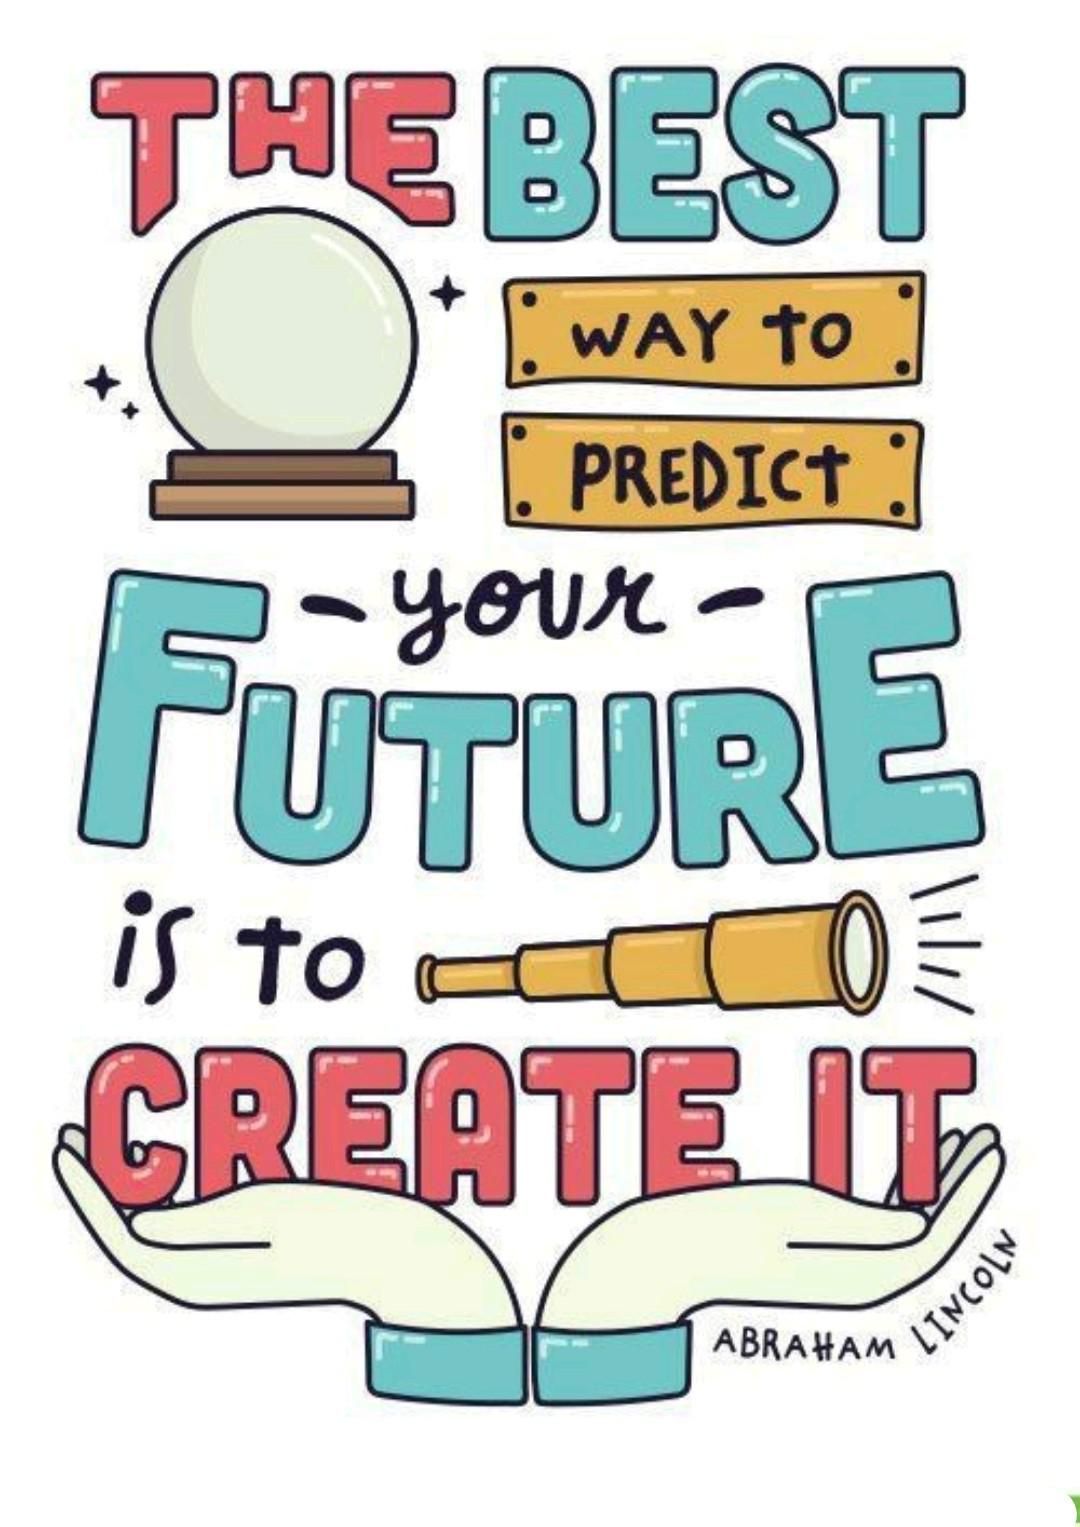 THE BEST
WAY TO
PREDICT
- your -
FUTURE
is to
CREATE IT
ABRAHAM LINCOLN